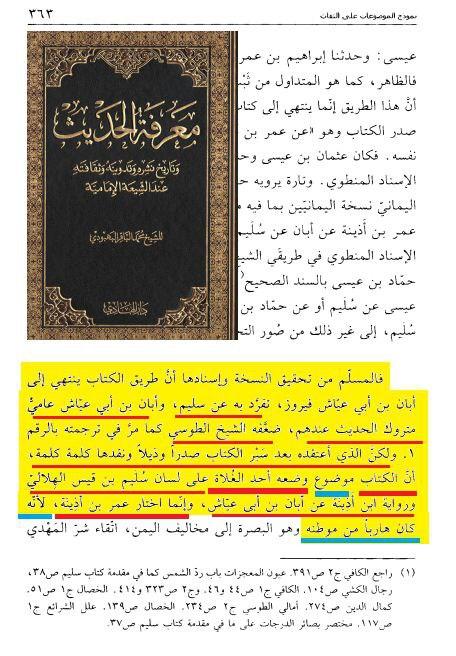 نموذج الموضوعات على الثقات
٣٦٣
عيسى: وحدثنا إبراهيم بن عمر
فالظاهر، كما هو المتداول من ثَبْت
أنّ هذا الطريق إنّما ينتهي إلى كتاب
صدر الكتاب وهو «عن عمر بن
نفسه. فكان عثمان بن عيسى وحـ
الإسناد المنطوي. وتارة يرويه حـ
اليمانيّ نسخة اليمانيّين بما فيه مـ
عمر بن أذينة عن أبان عن سُلَيم
الإسناد المنطوي في طريقَي الشيخ
حمّاد بن عيسى بالسند الصحيح(
عيسى عن سُلَيم أو عن حمّاد بن
سُلَيم، إلى غير ذلك من صُور التحـ
معرفة الحديث
وتاريخ نشره وتدوينه وثقافته
عند الشيعة الإمامية
للشيخ محمد الباقر البهبودي
دار الهادي
فالمسلّم من تحقيق النسخة وإسنادها أنّ طريق الكتاب ينتهي إلى
أبان بن أبي عيّاش فيروز، تفرّد به عن سليم، وأبان بن أبي عيّاش عاميٌّ
متروك الحديث عندهم، ضعَّفه الشيخ الطوسي كما مرَّ في ترجمته بالرقم
١. ولكنّ الذي أعتقده بعد سَبْر الكتاب صدراً وذيلاً ونقدها كلمة كلمة،
أنّ الكتاب موضوع وضعه أحد الغُلاة على لسان سُلَيم بن قيس الهلاليّ
ورواية ابن أذينة عن أبان بن أبي عيّاش، وإنّما اختار عمر بن أذينة، لأنّه
كان هارباً من موطنه وهو البصرة إلى مخاليف اليمن، اتّقاء شرّ المَهْدي
(١) راجع الكافي ج٢ ص٣٩١. عيون المعجزات باب ردّ الشمس كما في مقدمة كتاب سليم ص٣٨،
رجال الكشي ص١٠٤. الكافي ج١ ص٤٤ و٤٦. وج٢ ص٣٢٣ و٤١٤. الخصال ج١ ص٥١.
كمال الدين ص٢٧٤. أمالي الطوسي ج٢ ص٢٣٤. الخصال ص١٣٩. علل الشرائع ج١
ص١١٧. مختصر بصائر الدرجات على ما في مقدمة كتاب سليم ص٣٧.